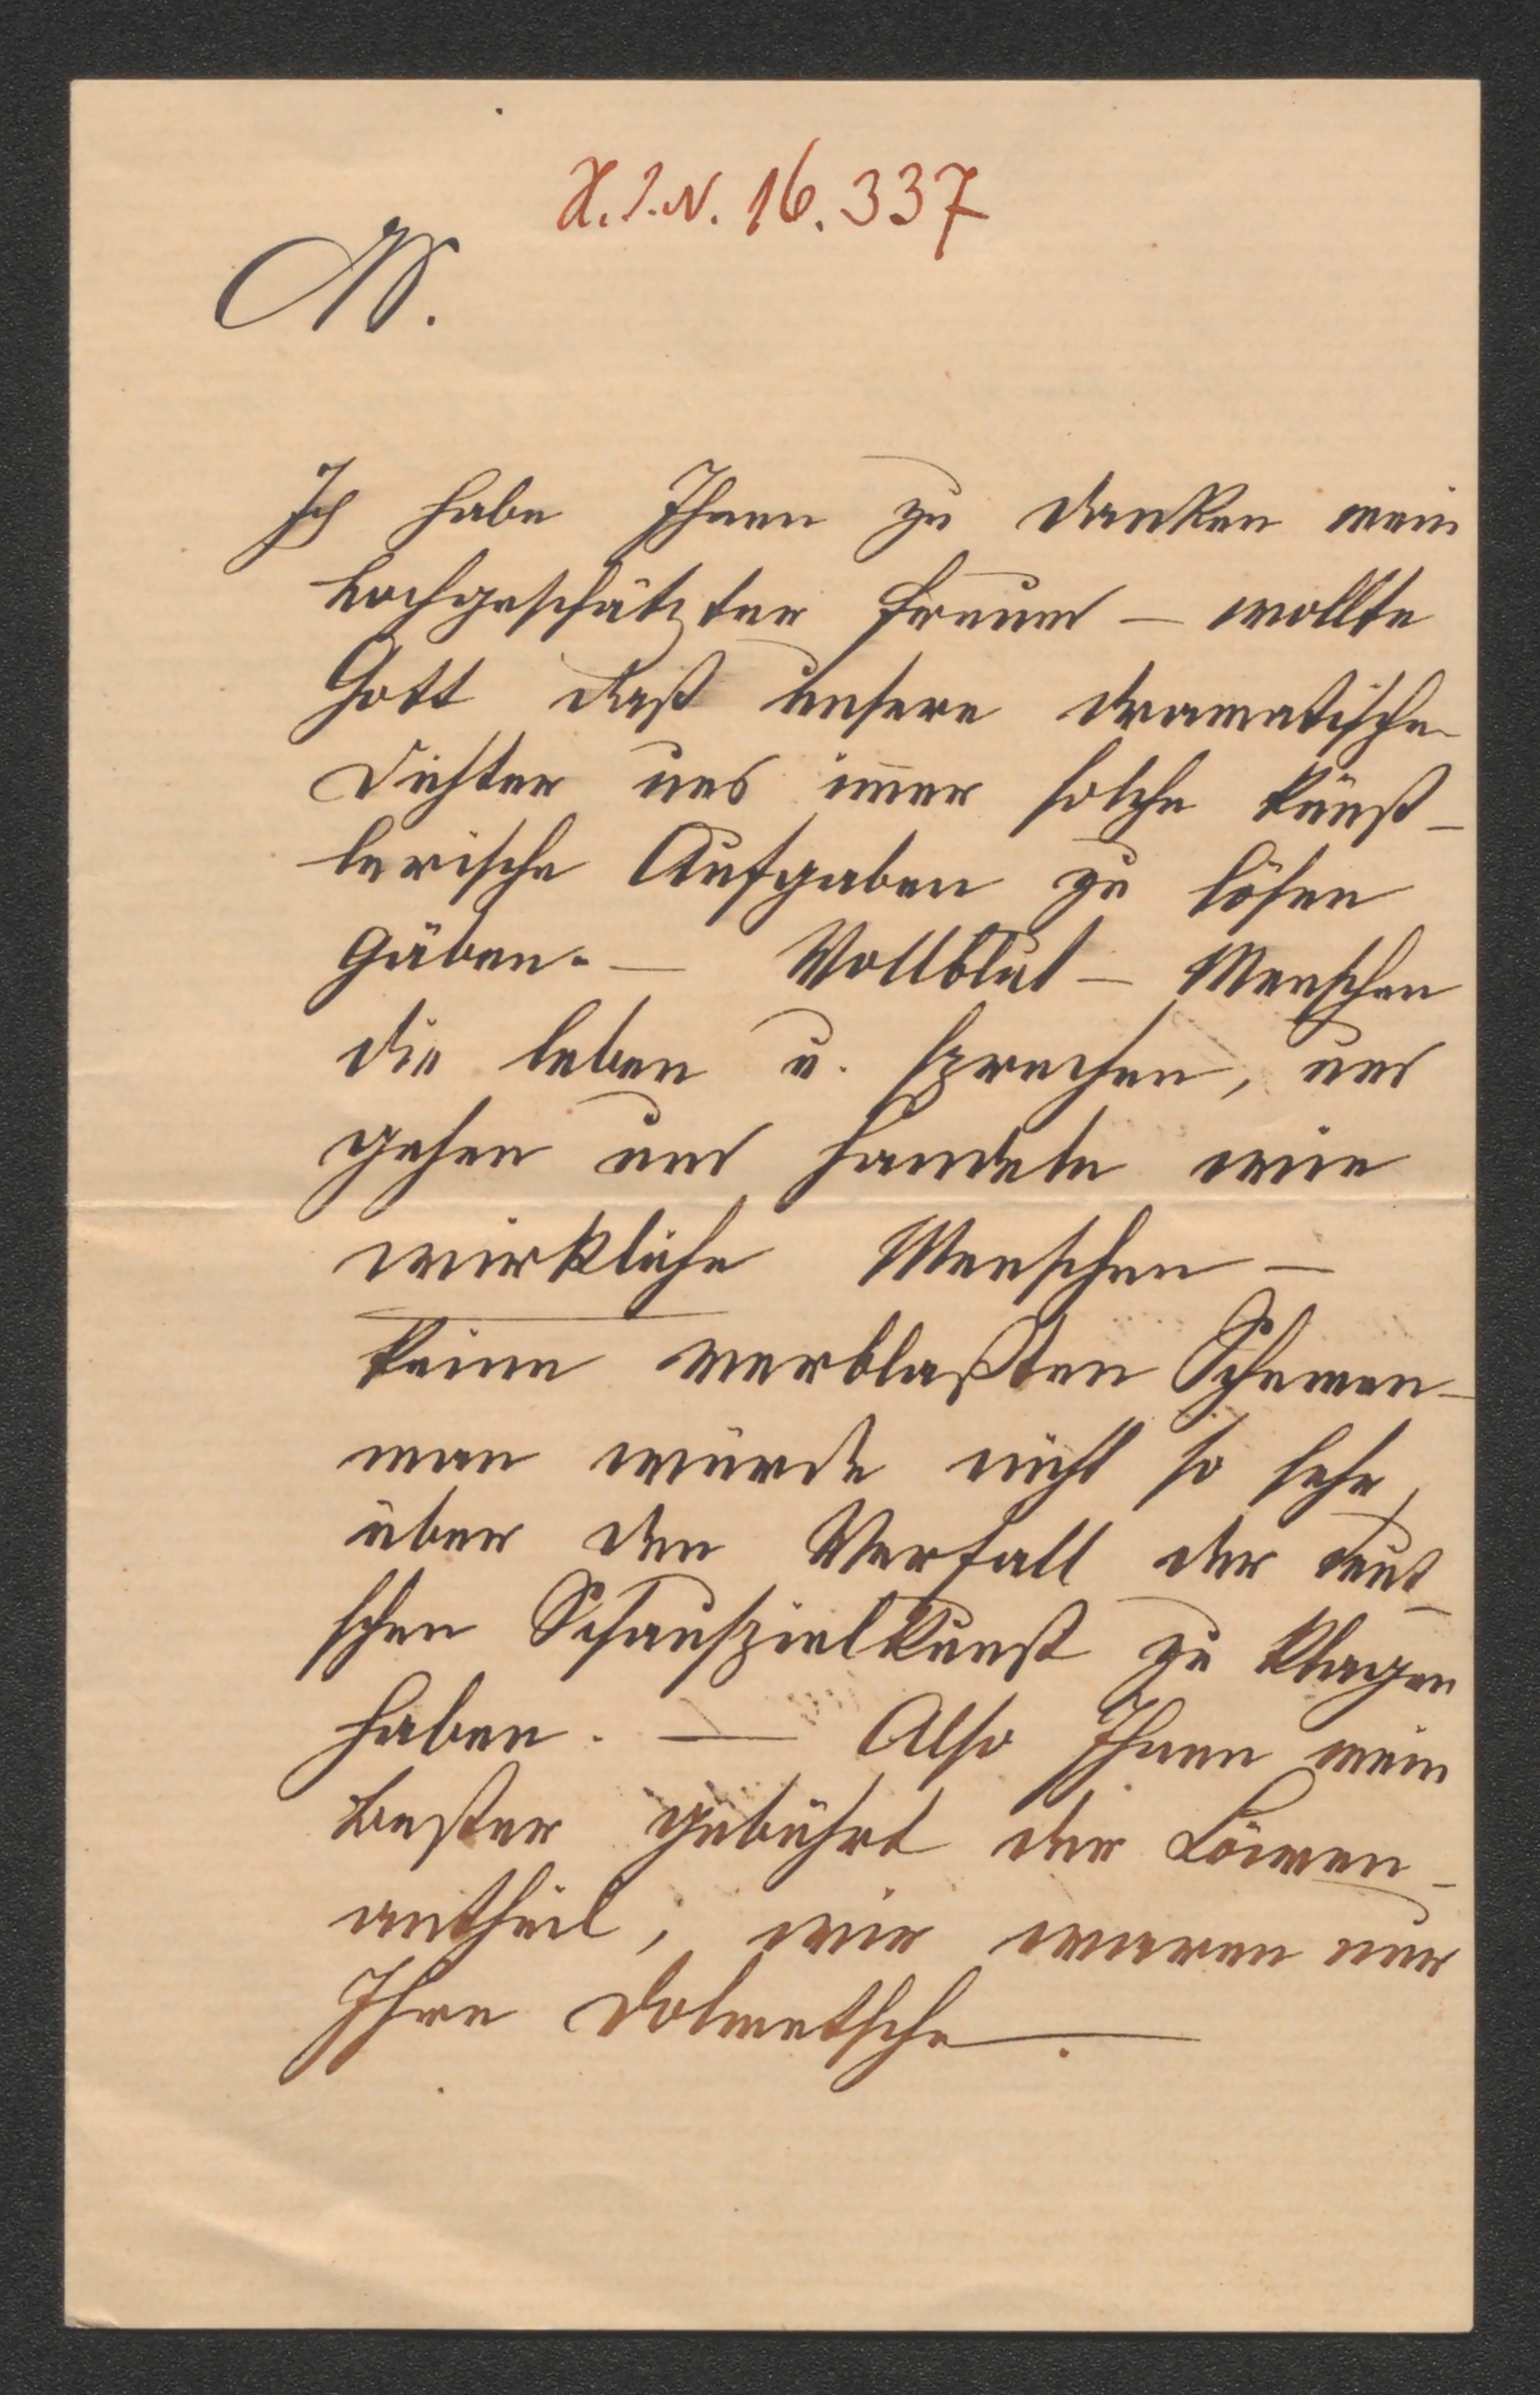 H.I.N. 16.337
Ich habe Ihnen zu danken mein
hochgeschätzter Freund – wollte
Gott daß unsere dramatische
Dichter uns im̅er solche künst-
lerische Aufgaben zu lösen
gäben. – Vollblut – Menschen
die leben u. sprechen, und
gehen und handeln wie
wirkliche Menschen –
keine verblaßten Schemen –
man würde nicht so sehr
über den Verfall der deut-
schen Schauspielkunst zu klagen
haben. – Also Ihnen mein
bester gebührt der Löwen-
antheil, wir waren nur
Ihre Dolmetsche. –